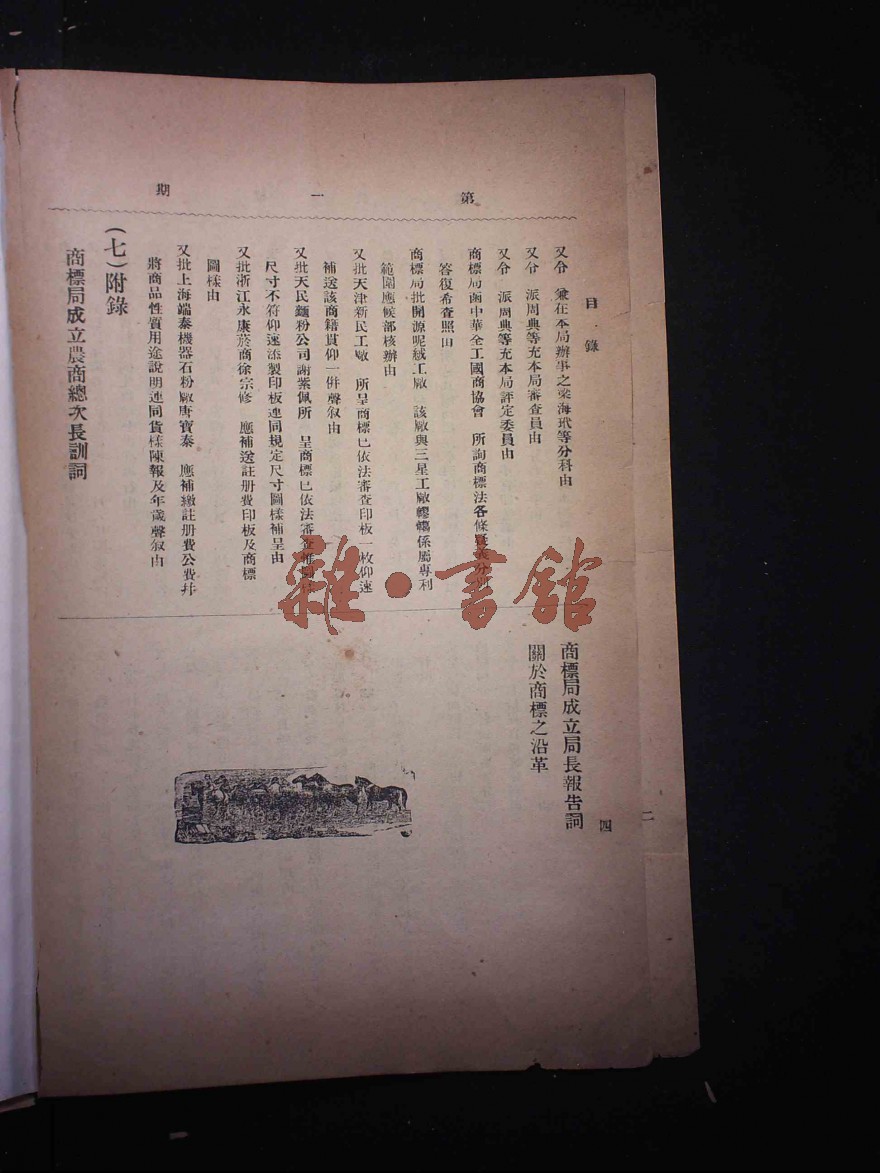 第一期
目錄
又令　兼在本局辦事之梁海玳等分科由
又令　派周典等充本局審查員由
又令　派周典等充本局評定委員由
商標局函中華全工國商協會　所詢商標法各條疑義分別
答復希查照由
商標局批開源呢絨工廠　該廠與三星工廠轇轕係屬專利
範圍應候部核辦由
又批天津新民工廠　所呈商標已依法審查印板一枚仰速
補送該商籍貫仰一併聲叙由
又批天民麵粉公司謝紫佩所　呈商標已依法審查
尺寸不符仰速添製印板連同規定尺寸圖樣補呈由
又批浙江永康菸商徐宗修　應補送註册費印板及商標
圖樣由
又批上海端泰機器石粉廠唐寶泰　應補繳註册費公費幷
將商品性質用途說明連同貨樣陳報及年歲聲叙由
（七）附錄
商標局成立農商總次長訓詞
商標局成立局長報告詞
關於商標之沿革
二
四
雜·書館